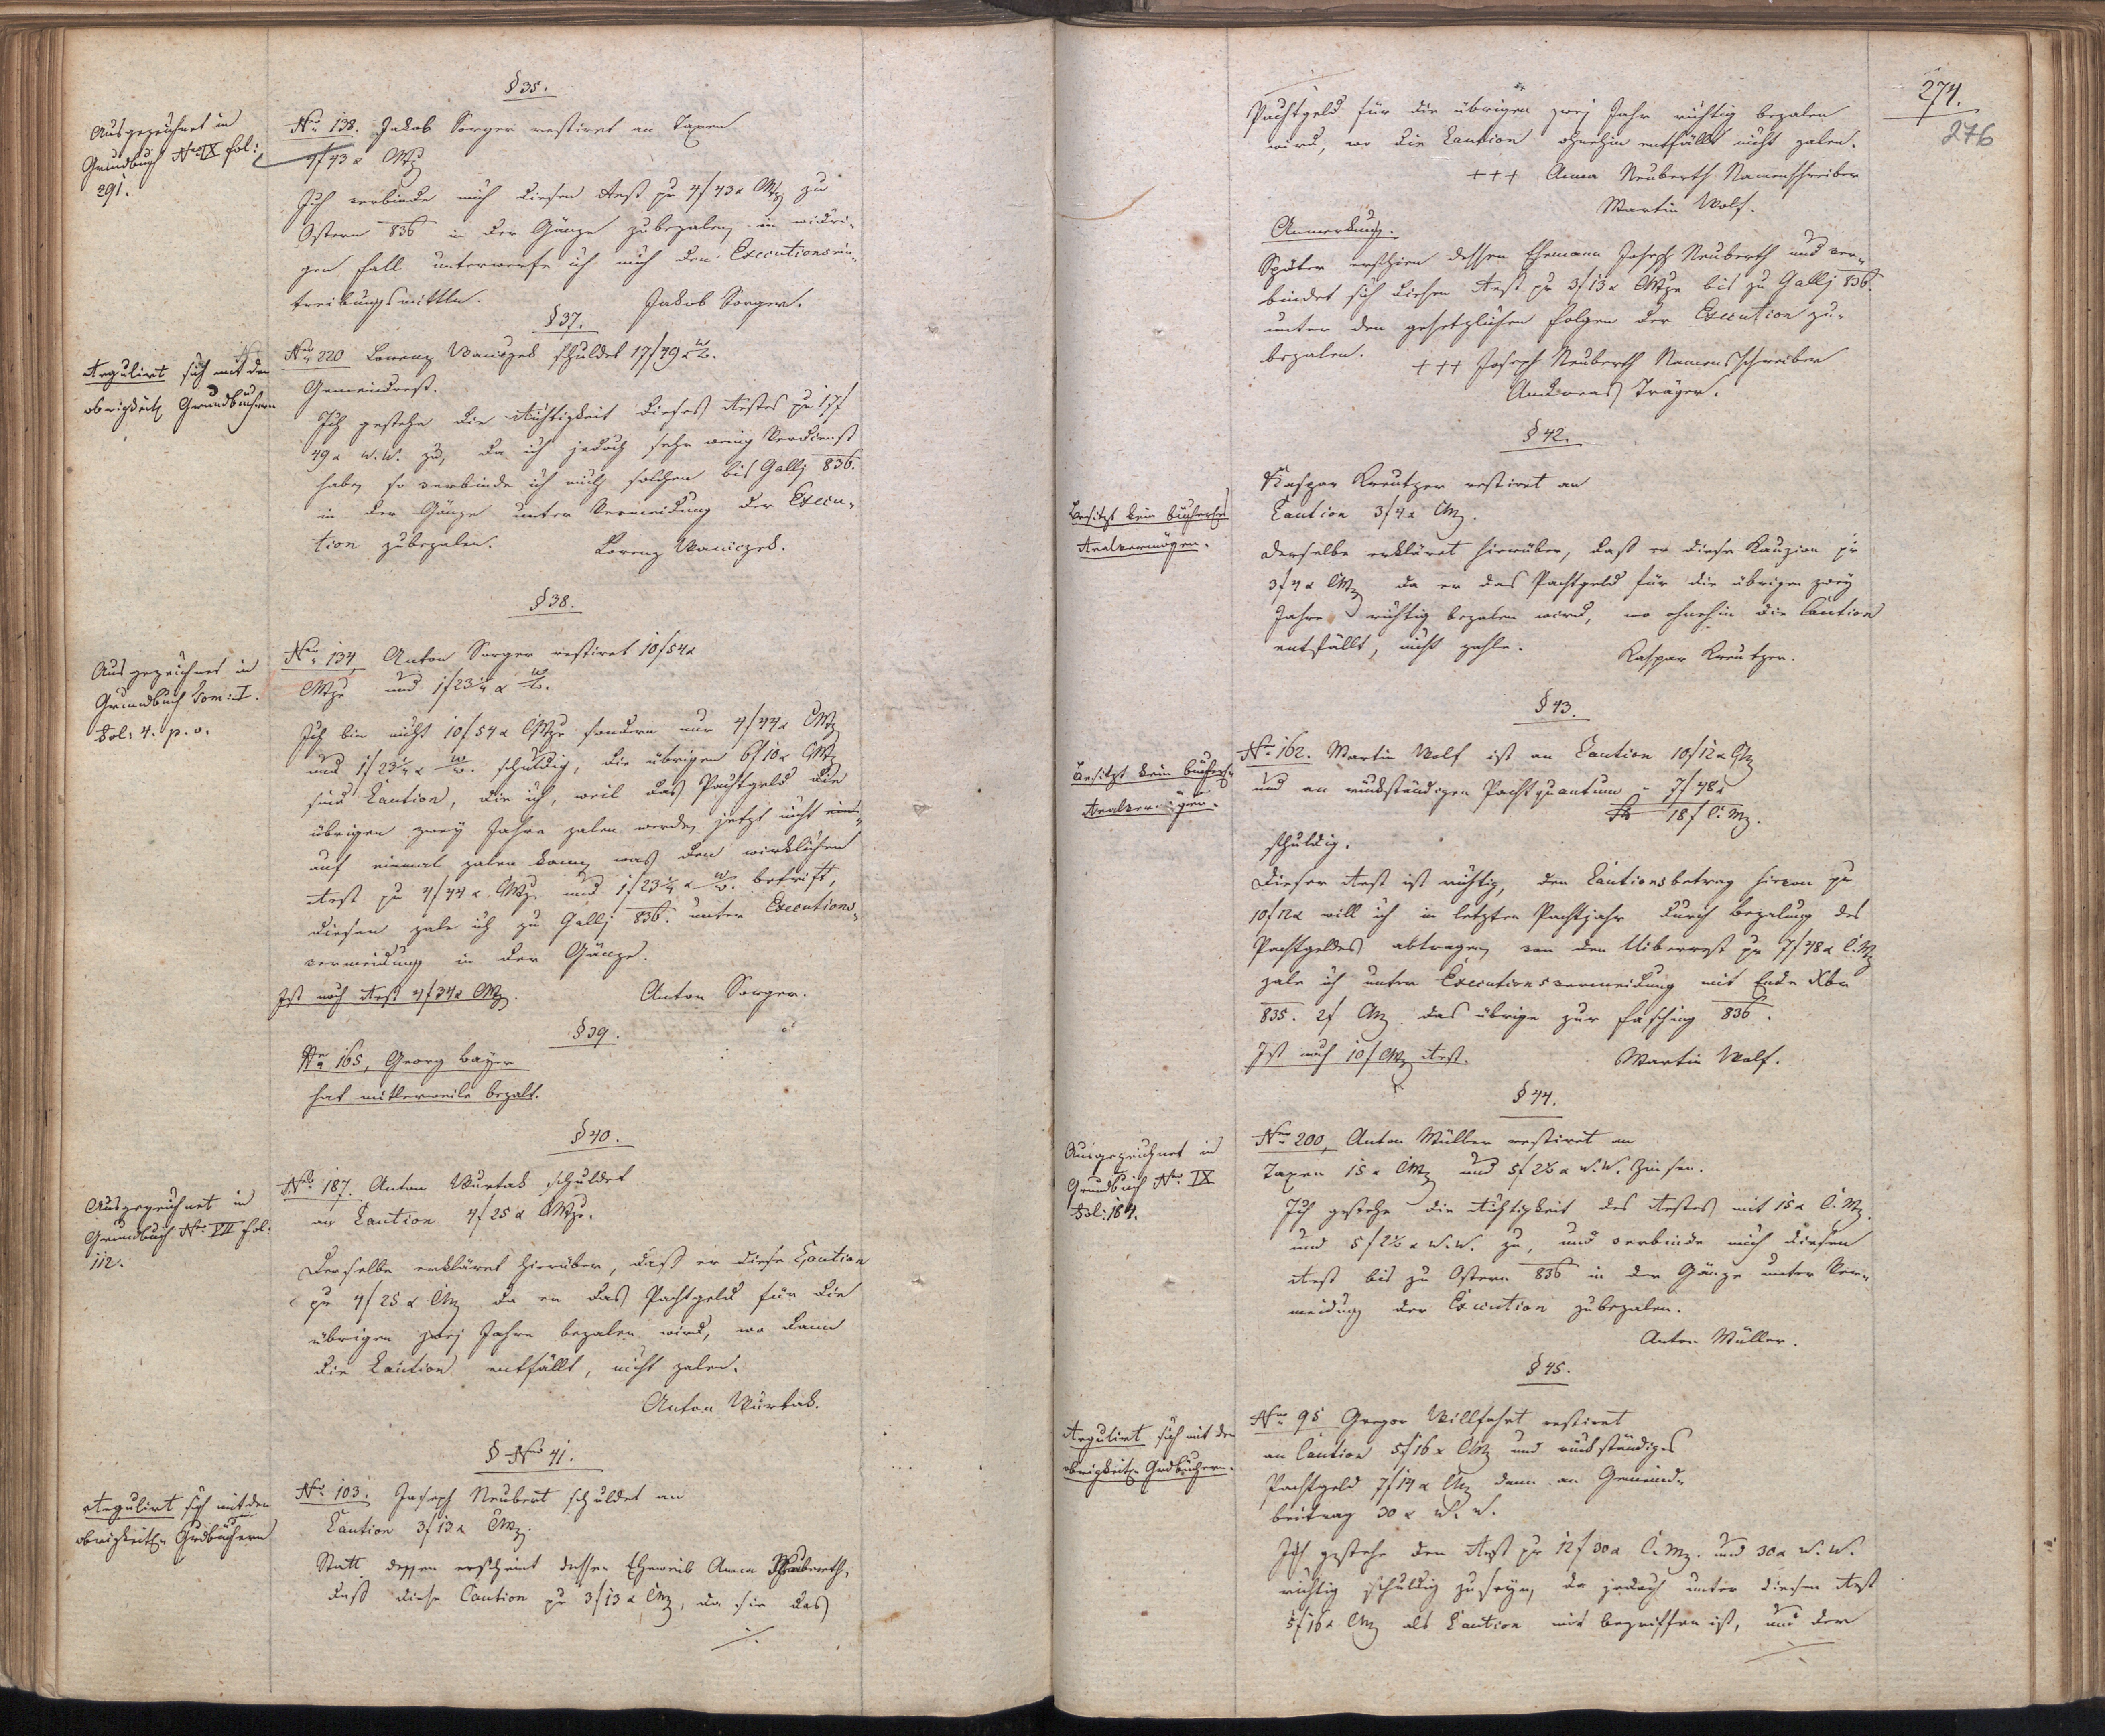 § 35.
Ausgezeichnet im
Grundbuch Nro IX fol:
291.
Nro 138. Jakob Sorger restiret an Taxen
4f 43 x CMz
Ich verbinde mich diesen Rest pr 4f 43x CMz zu
Ostern 836 in der Gänze zubezalen, in widri-
gen Fall unterwerfe ich mich den Executionsein-
treibungsmittln. Jakob Sorger.
§ 37.
Regulirt sich mit den
obrigkeitl. Grundbüchern
Nro 220 Lorenz Waniczek schuldet 17f 49x W.W.
Gemeindrest.
Ich gestehe die Richtigkeit dieses Restes pr 17f
49x W.W. zu, da ich jedoch sehr wenig Verdienst
habe, so verbinde ich mich solchen bis Gallj 836.
in der Gänze unter Vermeidung der Execu-
tion zubezalen. Lorenz Waniczek.
§ 38.
Ausgezeichnet im
Grundbuch Tom: I.
Fol: 4. p. v.
Nro 134, Anton Sorger restiret 10f 54x
CMze und 1f 23¼ x W.W.
Ich bin nicht 10f 54x CMze sondern nur 4f 44x CMz
und 1f 23¼ x W.W. schuldig, die übrigen 6f 10x CMz
sind Caution, die ich, weil das Pachtgeld die
übrigen zwey Jahre zalen werde, jetzt nicht
auf einmal zalen kann, was den wirklichen
Rest pr 4f 44x CMz und 1f 23¼ x W.W. betrift,
diesen zale ich zu Gallj 836. unter Executions-
vermeidung in der Gänze.
Ist noch Rest 4f 34x CMz. Anton Sorger.
§ 39.
Nro 165, Georg Bayer
hat mitlerweile bezalt.
§ 40.
Ausgezeichnet im
Grundbuch Nro VII fol:
112.
Nro 187. Anton Wurtak schuldet
an Caution 4f 25x CMze.
Derselbe erkläret hierüber, daß er diese Caution
pr 4f 25x CMz da er das Pachtgeld für die
übrigen zwej Jahre bezalen wird, wo dann
die Caution entfällt, nicht zalen.
Anton Wurtak.
§ Nro 41.
Regulirt sich mit den
obrigkeitl. Grdbüchern
Nro 103. Joseph Neubert schuldet an
Caution 3f 13x CMz.
Statt dessen erscheint dessen Eheweib Anna Neuberth,
daß diese Caution pr 3f 13x CMz, da sie das
./.
274.
276
Pachtgeld für die übrigen zwej Jahr richtig bezalen
wird, wo die Caution ohnehin entfällt nicht zalen.
+++ Anna Neuberth Namenschreiber
Martin Wolf.
Anmerkung.
Später erschien dessen Ehemann Joseph Neuberth und ver-
bindet sich diesen Rest pr 3f 13x CMze bis zu Gallj 836.
unter den gesetzlichen Folgen der Execution zu-
bezalen.
+++ Joseph Neuberth Namensschreiber
Andreas Träger.
§ 42.
Besitzt kein bücherl.
Realvermögen.
Kaspar Kreutzer restiret an
Caution 3f 4x CMz.
Derselbe erkläret hierüber, daß er diese Kauzion pr
3f 4x CMz da er das Pachtgeld für die übrigen zwey
Jahre richtig bezalen wird, wo ohnehin die Caution
entfällt, nicht zahle. Kaspar Kreutzer.
§ 43.
Besitzt kein bücherl.
Realvermögen.
Nro 162. Martin Wolf ist an Caution 10f 12x CMz
und an rückständigen Pachtquantum - 7f 48x
18f C.Mz.
schuldig.
Dieser Rest ist richtig, den Cautionsbetrag hievon pr
10f 12x will ich in letzten Pachtjahr durch bezalung des
Pachtgeldes abtragen, von den Uiberrest pr 7f 48x C.Mz
zale ich unter Executionsvermeidung mit Ende Xbr
835. 2f CMz. das übrige zur Fasching 836.
Ist noch 10f CMz Rest. Martin Wolf.
§ 44.
Ausgezeichnet im
Grundbuch Nro IX
Fol: 184.
Nro 200, Anton Müller restiret an
Taxen 15x CMz und 5f 2½ x W.W. Zinsen.
Ich gestehe die Richtigkeit des Restes mit 15x C.Mz.
und 5f 2½ x W.W. zu, und verbinde mich diesen
Rest bis zu Ostern 836 in der Gänze unter Ver-
meidung der Execution zubezalen.
Anton Müller.
§ 45.
Regulirt sich mit den
obrigkeitl. Grdbüchern.
Nro 95 Gregor Willfahrt restiret
an Caution 5f 16x CMz und rückständiges
Pachtgeld 7f 14x CMz dann an Gemeind-
beitrag 30x W.W.
Ich gestehe den Rest pr 12f 30x C.Mz. und 30x W.W.
richtig schuldig zu seyn, da jedoch unter diesem Rest
5f 16x CMz als Caution mit begriffen ist, und der
./.